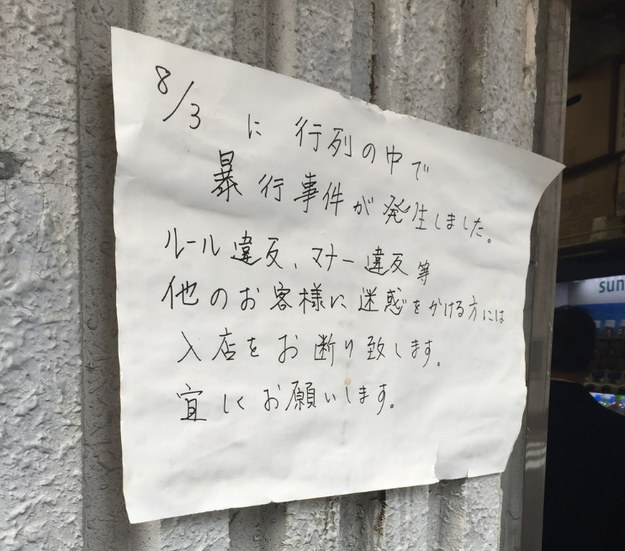 8/3 に 行列の中で
暴行事件が発生しました。
ルール違反、マナー違反等
他のお客様に迷惑をかける方には
入店をお断り致します。
宜しくお願いします。
sun